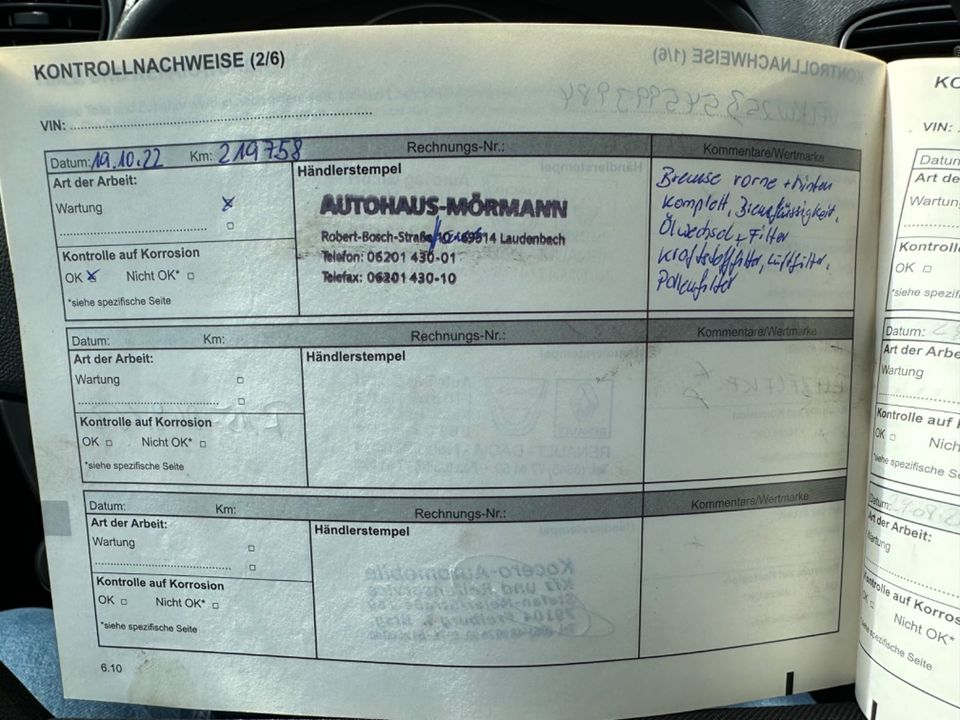 KONTROLLNACHWEISE (2/6)
KONTROLLNACHWEISE (1/6)
VIN:
Datum: 19.10.22 Km: 219758 Rechnungs-Nr.: Kommentare/Wertmarke
Art der Arbeit:
Wartung x
Kontrolle auf Korrosion
OK x Nicht OK*
*siehe spezifische Seite
Händlerstempel
AUTOHAUS-MÖRMANN
Robert-Bosch-Straße 10 · 69514 Laudenbach
Telefon: 06201 430-01
Telefax: 06201 430-10
Bremse vorne + hinten
komplett,
Ölwechsel + Filter
Kraftstofffilter, Luftfilter,
Pollenfilter
Datum: Km: Rechnungs-Nr.: Kommentare/Wertmarke
Art der Arbeit:
Wartung
Kontrolle auf Korrosion
OK Nicht OK*
*siehe spezifische Seite
Händlerstempel
Datum: Km: Rechnungs-Nr.: Kommentare/Wertmarke
Art der Arbeit:
Wartung
Kontrolle auf Korrosion
OK Nicht OK*
*siehe spezifische Seite
Händlerstempel
6.10
KO
VIN:
Datum
Art de
Wartung
Kontroll
OK
*siehe spezi
Datum:
Art der Arbe
Wartung
Kontrolle auf K
OK Nich
*siehe spezifische Se
Datum:
Art der Arbeit:
Wartung
Kontrolle auf Korros
OK Nicht OK*
*siehe spezifische Seite